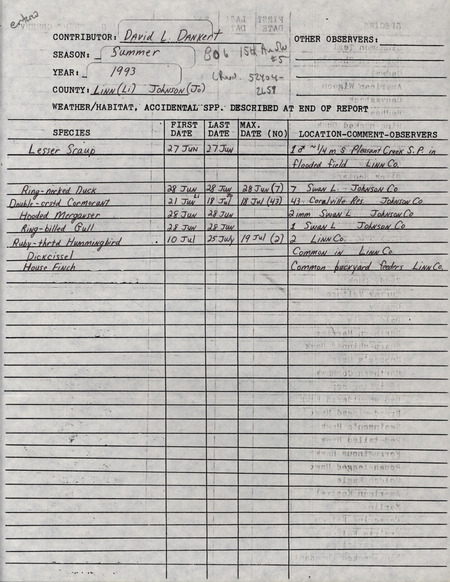 entered
CONTRIBUTOR: David L. Dankert OTHER OBSERVERS:
SEASON: Summer 806 15th Av SW #5
YEAR: 1993 52404-
COUNTY: Linn (Li) Johnson (Jo) 2659
WEATHER/HABITAT, ACCIDENTAL SPP. DESCRIBED AT END OF REPORT
SPECIES FIRST DATE LAST DATE MAX. DATE (NO) LOCATION-COMMENT-OBSERVERS
Lesser Scaup 27 Jun 27 Jun 1♂ ~1/4 m S Pleasant Creek S.P. in
flooded field Linn Co.
Ring-necked Duck 28 Jun 28 Jun 28 Jun (7) 7 Swan L. Johnson Co
Double-crstd Cormorant 21 Jun 18 Jul 18 Jul (43) 43 Coralville Res. Johnson Co
Hooded Merganser 28 Jun 28 Jun 2 imm Swan L Johnson Co
Ring-billed Gull 28 Jun 28 Jun 1 Swan L Johnson Co
Ruby-thrtd Hummingbird 10 Jul 25 July 19 Jul (2) 2 Linn Co.
Dickcissel Common in Linn Co.
House Finch Common backyard feeders Linn Co.